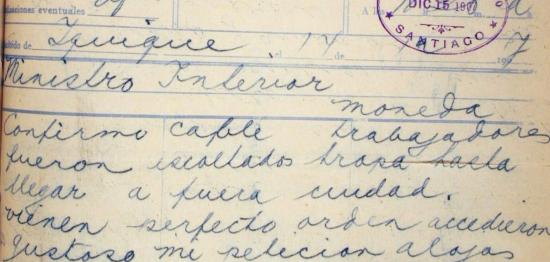 aciones eventuales
DIC 15 190
SANTIAGO
bido de Iquique el 14 de 190 7
Ministro Interior
moneda
Confirmo cable trabajadores
fueron escoltados tropa hasta
llegar a fuera ciudad.
vienen perfecto orden accedieron
gustoso mi peticion alojar